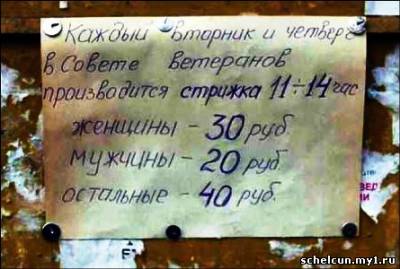 Каждый вторник и четверг
в Совете ветеранов
производится стрижка 11÷14 час
женщины - 30 руб.
мужчины - 20 руб.
остальные - 40 руб.
schelcun.my1.ru